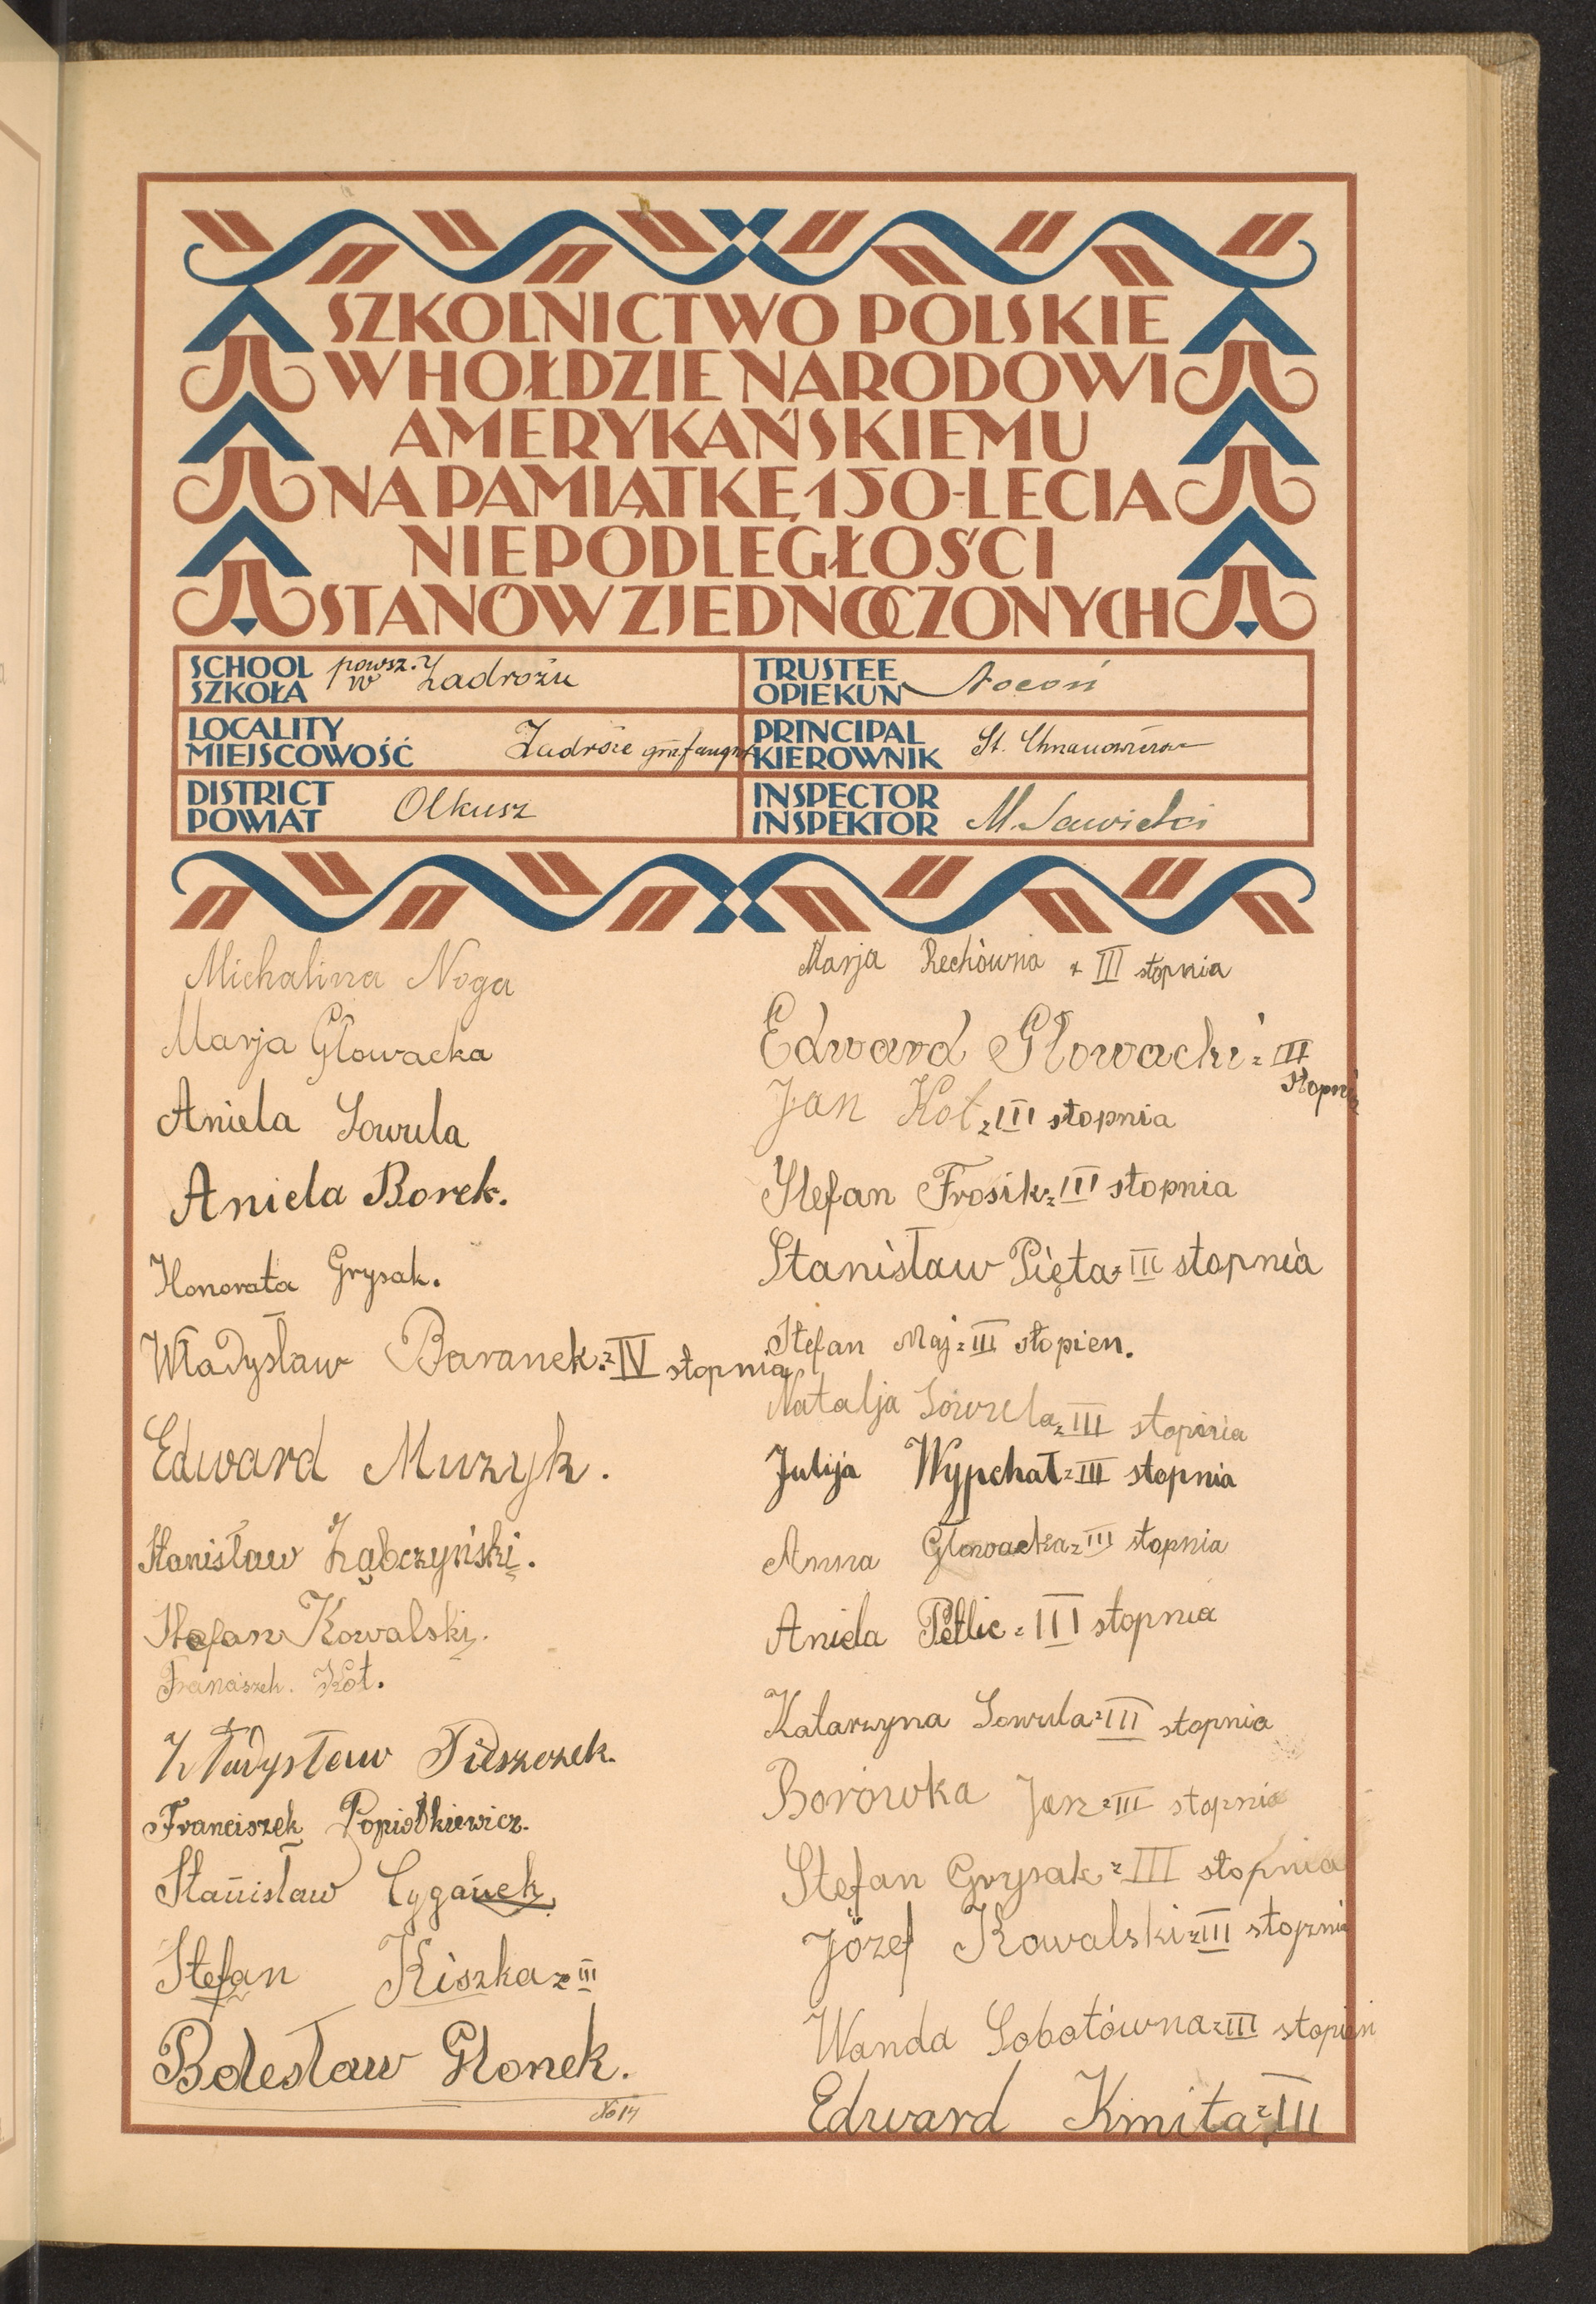 SZKOLNICTWO POLSKIE
W HOŁDZIE NARODOWI
AMERYKAŃSKIEMU
NA PAMIĄTKĘ 150-LECIA
NIEPODLEGŁOŚCI
STANÓW ZJEDNOCZONYCH
SCHOOL
SZKOŁA
powsz.
w Zadrożu
TRUSTEE
OPIEKUN
Nocoń
LOCALITY
MIEJSCOWOŚĆ
Zadroże
PRINCIPAL
KIEROWNIK
St.
DISTRICT
POWIAT
Olkusz
INSPECTOR
INSPEKTOR
M. Sawicki
Michalina Noga
Marja Głowacka
Aniela Sowula
Aniela Borek.
Honorata Grysak.
Władysław Baranek. z IV stopnia
Edward Muzyk.
Stanisław Ząbczyński.
Stefan Kowalski.
Franciszek. Kot.
Władysław Pieszczek.
Franciszek Popiołkiewicz.
Stanisław Cyganek.
Stefan Kiszka z III
Bolesław Glonek.
No 14
Marja Rechówna z III stopnia
Edward Głowacki z III
stopnia
Jan Kot z III stopnia
Stefan Frosik z III stopnia
Stanisław Pięta z III stopnia
Stefan Maj z III stopien.
Natalja Sowula z III stopnia
Julija Wypchał z III stopnia
Anna Głowacka z III stopnia
Aniela Petlic z III stopnia
Katarzyna Sowula z III stopnia
Borówka Jan z III stopnia
Stefan Grysak z III stopnia
Józef Kowalski z III stopnia
Wanda Sobotówna z III stopień
Edward Kmita z III